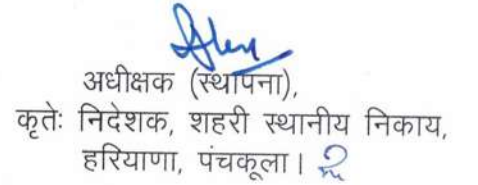 अधीक्षक (स्थापना),
कृतेः निदेशक, शहरी स्थानीय निकाय,
हरियाणा, पंचकूला।